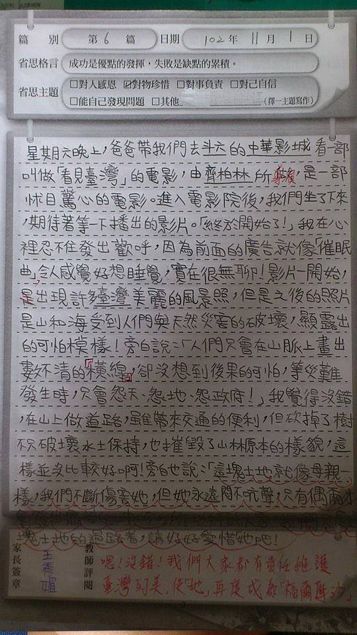 篇 別 第 6 篇 日期 102 年 11 月 1 日
省思格言 成功是優點的發揮，失敗是缺點的累積。
省思主題 □對人感恩 ☑對物珍惜 □對事負責 □對己自信
□能自己發現問題 □其他 （擇一主題寫作）
星期六晚上，爸爸帶我們去斗六的中華影城看一部
叫做「看見臺灣」的電影，由齊柏林所 是一部
怵目驚心的電影。進入電影院後，我們坐了下來
，期待著等一下播出的影片。「終於開始了！」我在心
裡忍不住發出歡呼，因為前面的廣告就像「催眠
曲」，令人感覺好想睡覺，實在很無聊！影片一開始，
是出現許多臺灣美麗的風景照，但是之後的照片
是山和海受到人們與天然災害的破壞，顯露出
的可怕模樣！旁白說：「人們只會在山脈上畫出
數不清的「橫線」，卻沒想到後果的可怕，等災難
發生時，只會怨天、怨地、怨政府！」我覺得沒錯
，在山上做道路，雖帶來交通的便利，但砍掉了樹
不只破壞水土保持，也摧毀了山林原本的樣貌，這
樣並沒比較好啊！旁白也說：「這塊土地就像母親一
樣，我們不斷傷害她，但她永遠悶不吭聲，只有偶爾
塊土地的 請好好愛惜她吧！
家長簽章
教師評閱 嗯！沒錯！我們大家都有責任維護
臺灣的美，使她，再度成為「福爾摩沙」。